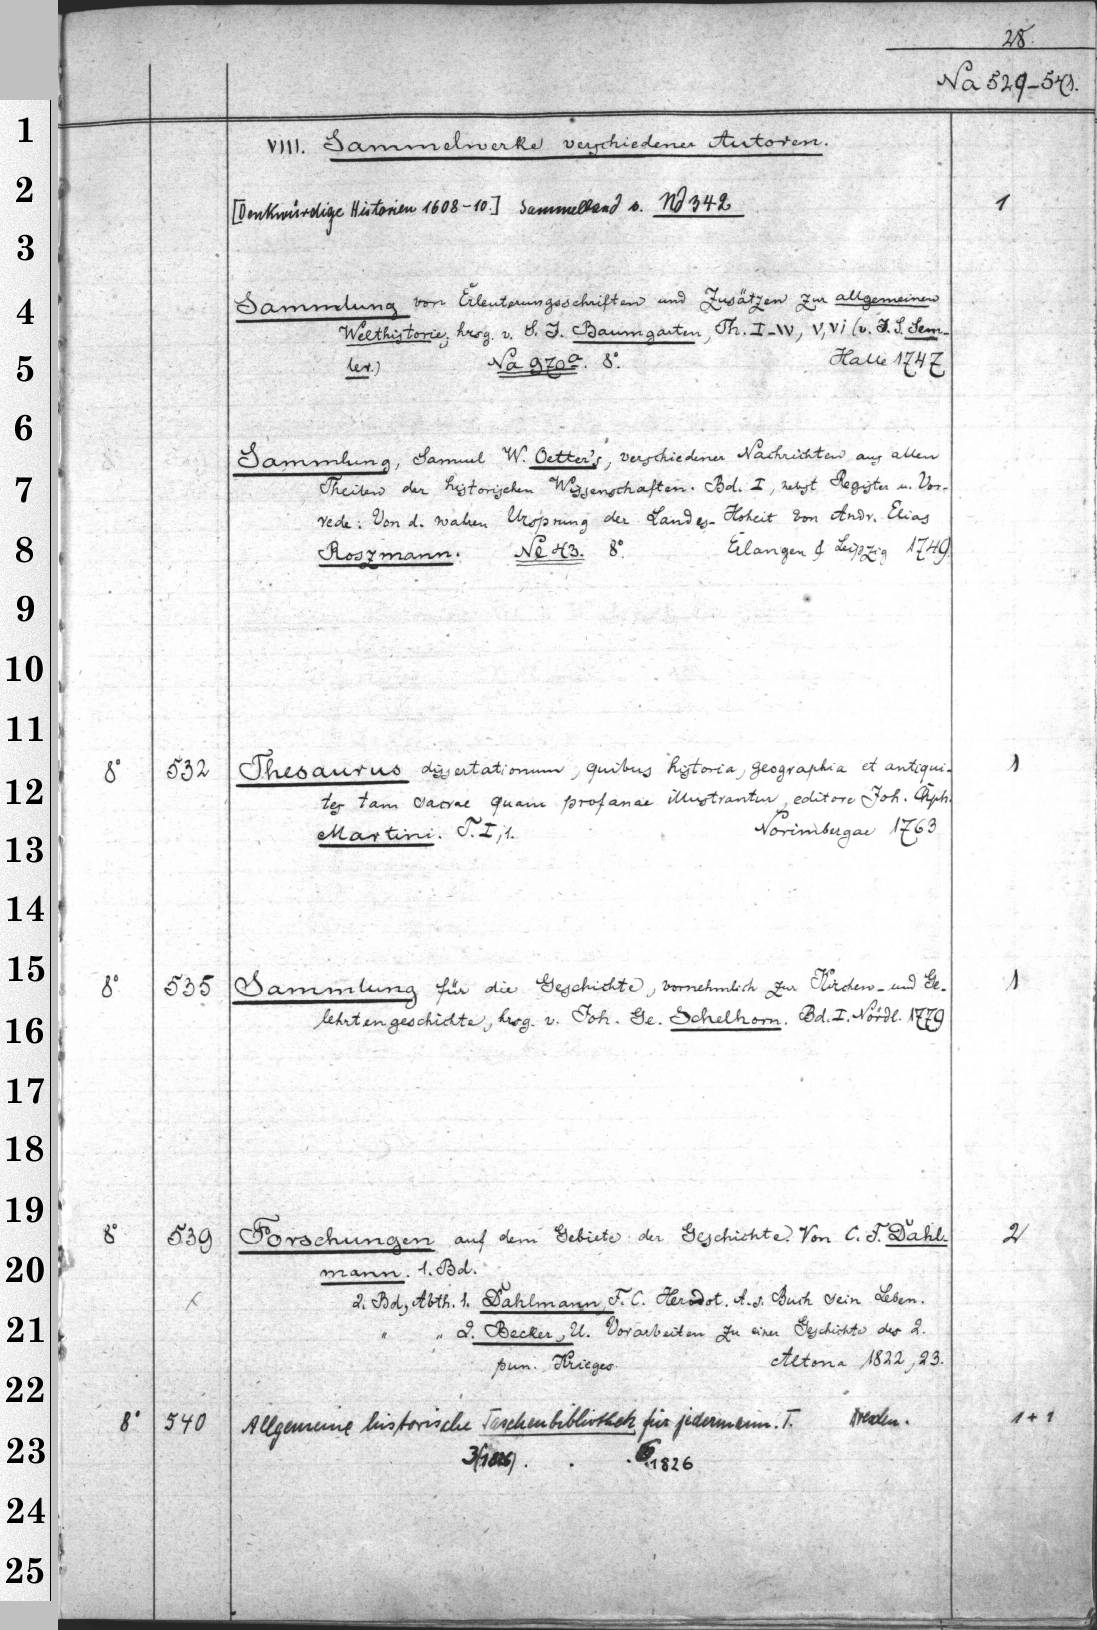 28.
Na 529-541.
VIII. Sammelwerke verschiedener Autoren.
[Denkwürdige Historien 1608-10.] Sammelband s. Nd 342 1
Sammlung von Erleuterungsschriften und Zusätzen zur allgemeinen
Welthistorie, hrsg. v. S. J. Baumgarten, Th. I-IV, V, VI (v. J. S. Sem-
ler.) Na 970a. 8°. Halle 1747
Sammlung, Samuel W. Oetter's, verschiedener Nachrichten aus allen
Theilen der historischen Wissenschaften. Bd. I, nebst Register u. Vor-
rede: Von d. wahren Ursprung der Landes-Hoheit von Andr. Elias
Roszmann. Ne 43. 8°. Erlangen & Leipzig 1749.
8° 532 Thesaurus dissertationum, quibus historia, geographia et antiqui- 1
tes tam sacrae quam profanae illustrantur, editore Joh. Chph.
Martini. T. I, 1. Norimbergae 1763
8° 535 Sammlung für die Geschichte, vornehmlich zur Kirchen- und Ge- 1
lehrtengeschichte, hrsg. v. Joh. Ge. Schelhorn. Bd. I. Nördl. 1779
8° 539 Forschungen auf dem Gebiete der Geschichte. Von C. F. Dahl- 2
mann. 1. Bd.
2. Bd, Abth. 1. Dahlmann, F. C. Herodot. A. s. Buch sein Leben.
" " 2. Becker, U. Vorarbeiten zu einer Geschichte des 2.
pun. Krieges. Altona 1822, 23.
8° 540 Allgemeine historische Taschenbibliothek für jedermann. T. Dresden. 1+1
3(1826). . . 6. 1826